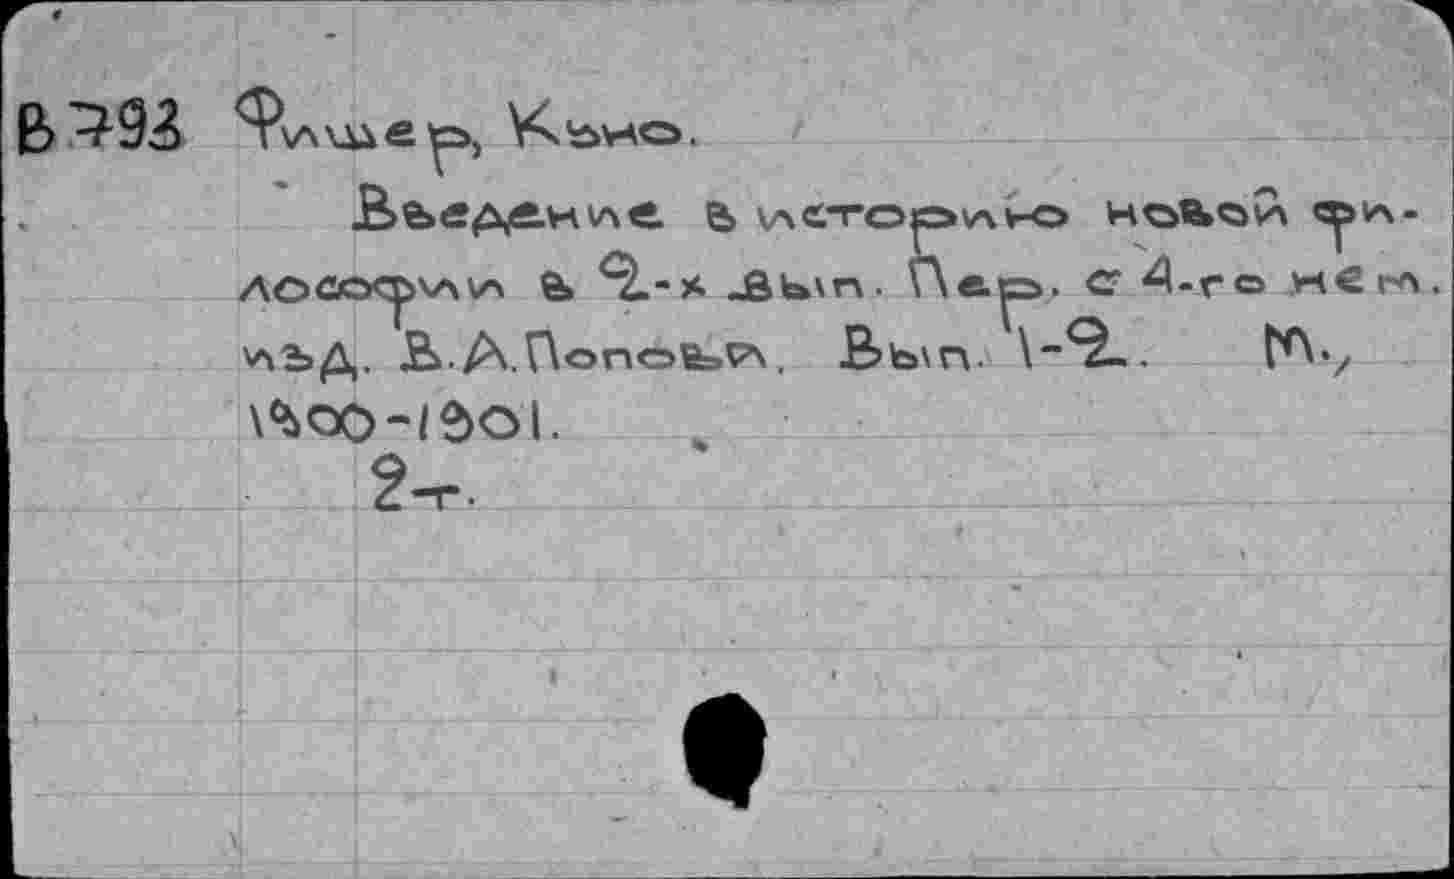 В 793 Фишер, Куно.
Введение в историю новой фи-
лософии в 2-х вып. Пер. с 4-го нем.
изд. В.А.Попова. Вып. 1-2. М.,
1900-1901.
2т.